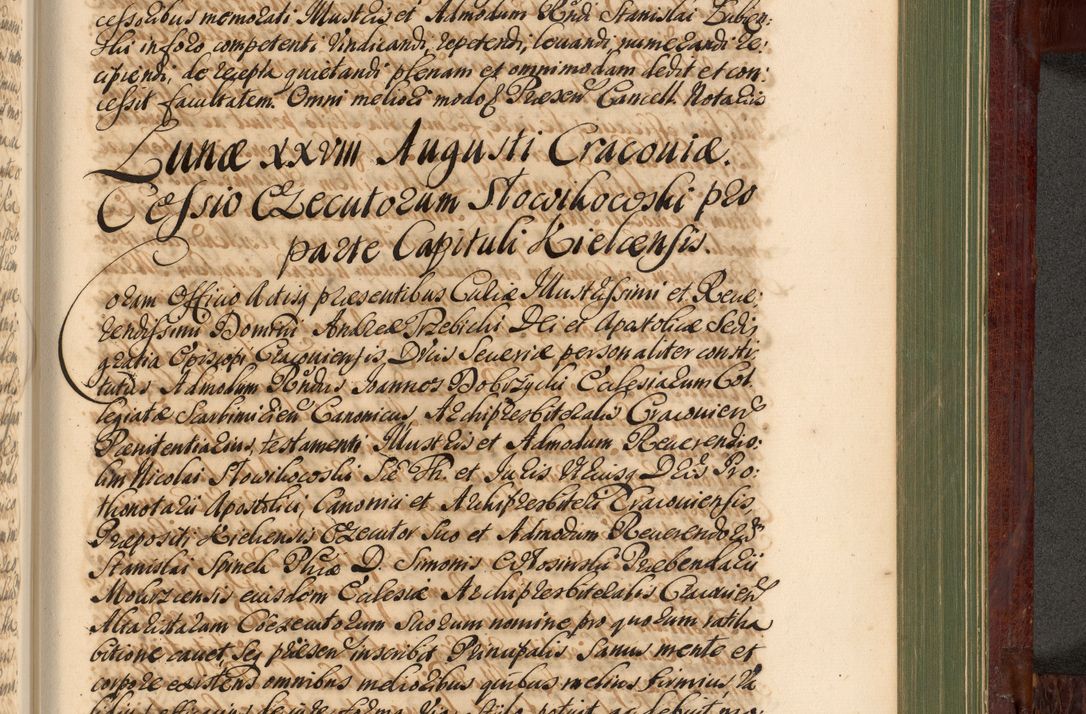 cessoribus memorati Illustris et Admodum Rndi Stanislai Lubien:
ski in foro competenti vindicandi, repetendi, levandi, numerandi re:
cipiendi, de recepta quietandi plenam et omnimodam dedit et con:
cessit facultatem. Omni meliori modo Præsen Cancell. Notariis
Lunæ XXVIII Augusti Cracoviæ.
Cessio Executorum Słowikowski pro
parte Capituli Kielcensis.
Coram Officio Actisq præsentibus Curiæ Illustrissimi et Reve:
rendissimi Domini Andreæ Trzebicki Dei et Apostolicæ Sedis
gratia Episcopi Cracoviensis Ducis Severiæ personaliter consti:
tutus Admodum Rndus Joannes Dobrzycki Ecclesiarum Col
legiatæ Scarbimirien Canonicus Archipresbiteralis Cracovien
Pænitentiarius, testamenti Illustris et Admodum Reverendis:
Nicolai Słowikowski S. Th. et Juris Utriusq Dris Pro:
thonotarii Apostolici, Canonici et Archipresbiteri Cracoviensis
Præpositi Kielcensis Executor suo et Admodum Reverendor
Stanislai Spinek Phiæ D. Simonis Præbendarii
eiusdem Ecclesiæ Archipresbiteralis Cracovien
Altaristarum Coexecutorum suorum nomine pro quorum ratiha
bitione cavet, seq præsen inscribit Principalis Sanus mente et
corpore existens omnibus melioribus quibus melius firmius va
lidius efficacius de iure forma Via, stilo potuit ac debuit mo: